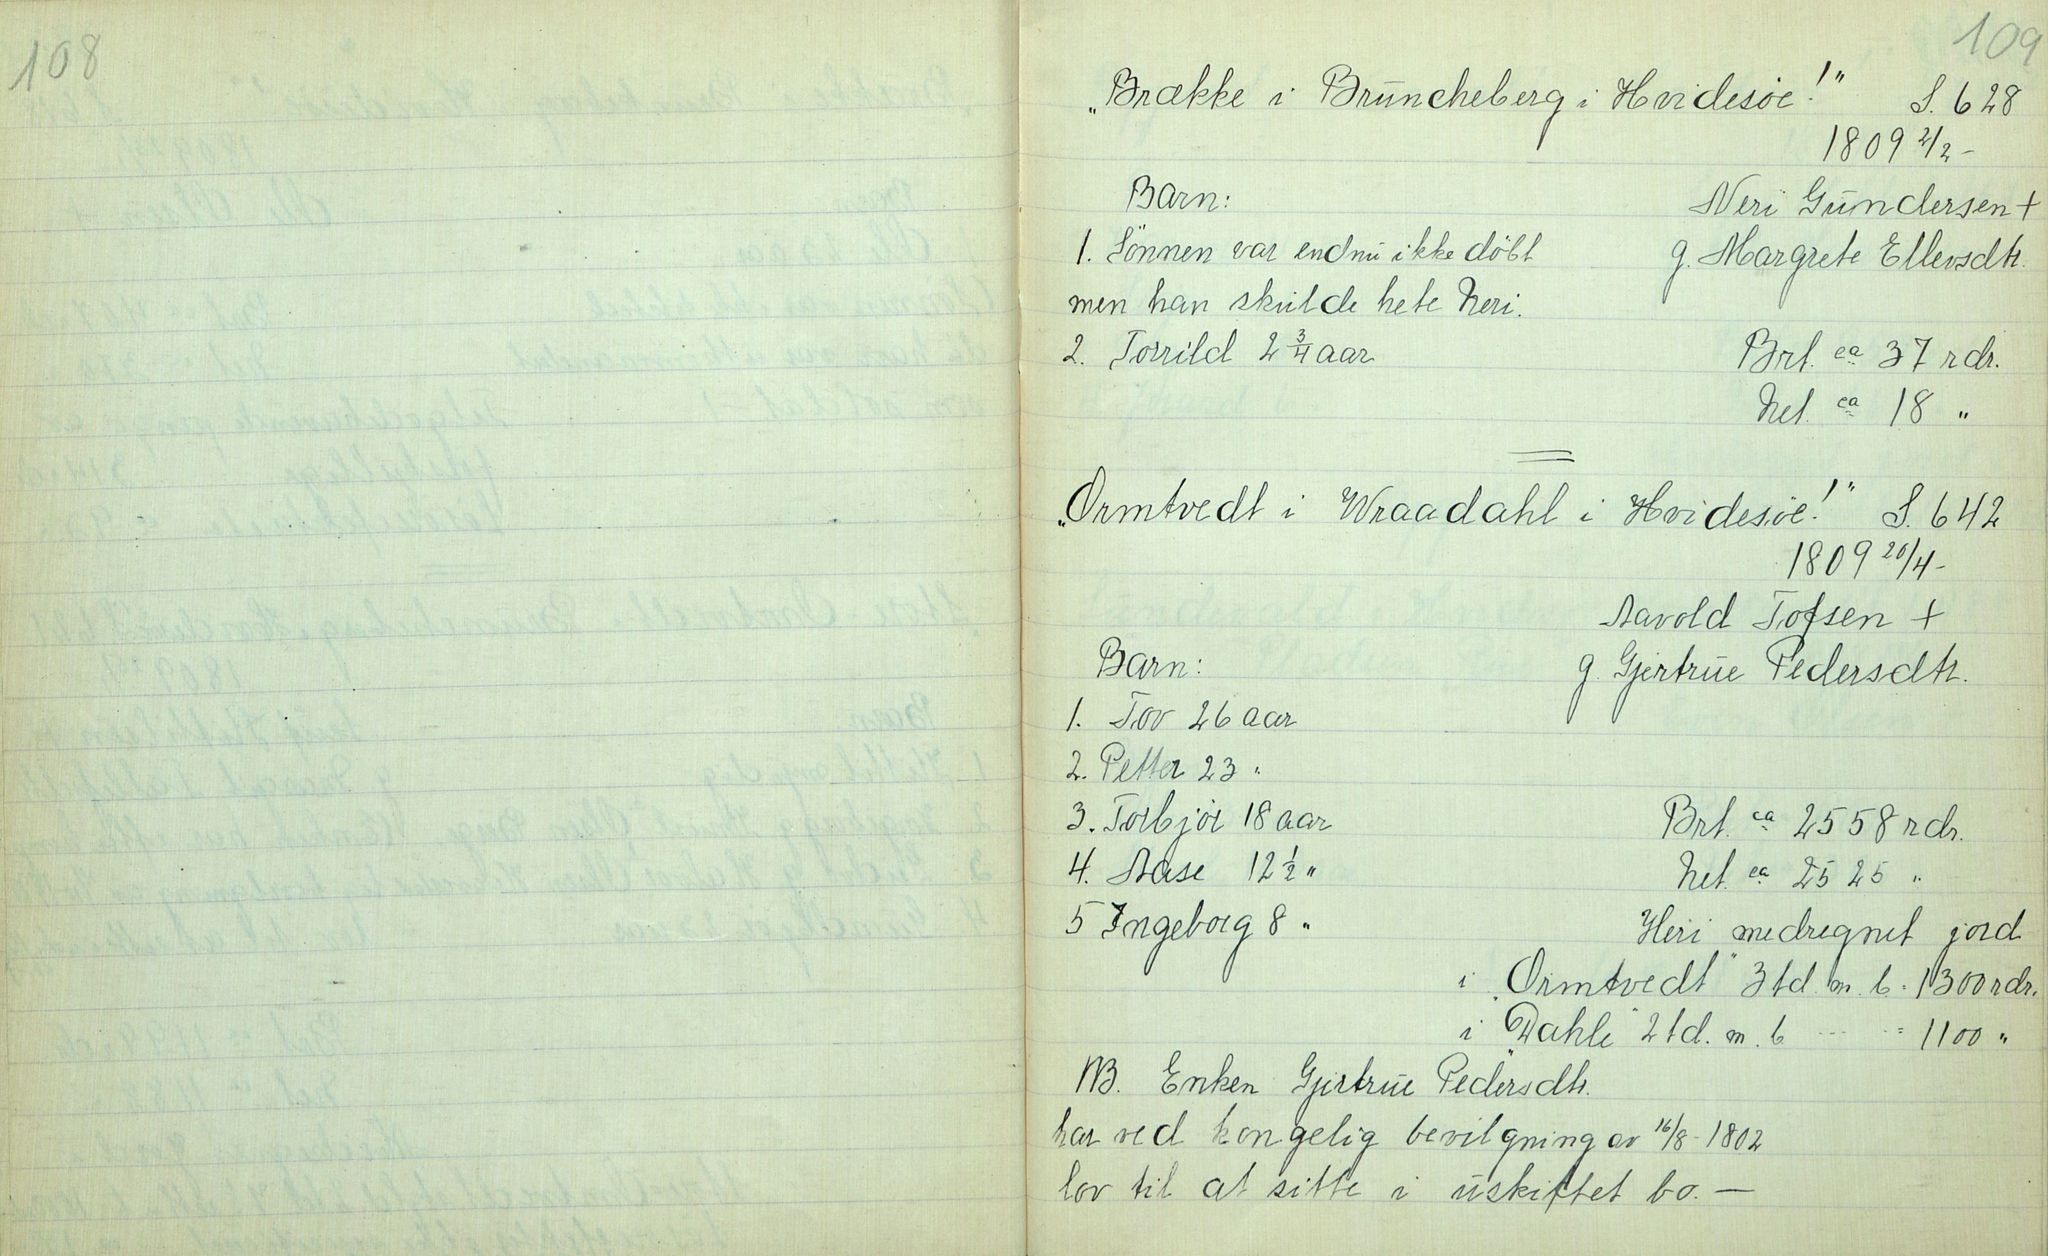 108
109
„Brække i Brüncheberg i Hvidesöe!" S. 628
1809 2/2 -
Barn: Neri Gündersen +
1. Sönnen var endnü ikke döbt g. Margrete Ellevsdtr.
men han skulde hete Neri.
2. Torrild 2 3/4 aar Brt. ca 37 rdr.
Net. ca 18 "
„Ormtvedt i Wraadahl i Hvidesöe!" S. 642
1809 20/4 -
Aavold Tofsen +
Barn: g. Gjertrüe Pedersdtr.
1. Tov 26 aar
2. Petter 23 "
3. Torbjør 18 aar Brt. ca 2558 rdr.
4. Aase 12 1/2 " Net. ca 2525 "
5 Ingeborg 8 " Heri medregnet jord
i „Ormtvedt" 3 td. m. b. = 1300 rdr.
i „Dahle" 2 td. m. b = 1100 "
NB. Enken Gjertrüe Pedersdtr.
har ved kongelig bevilgning av 16/8 - 1802
lov til at sitte i üskiftet bo. —